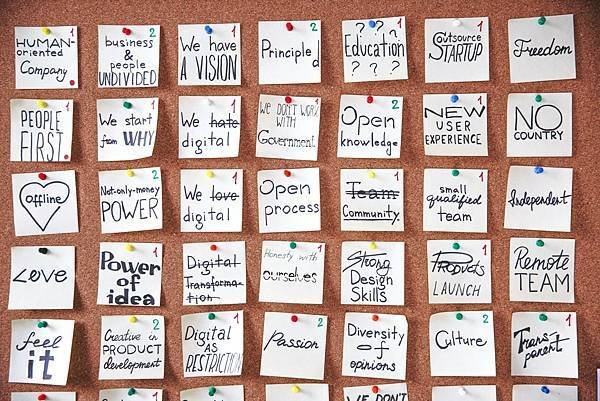 1
HUMAN-
oriented
Company.
2
business
&
people
UNDIVIDED
1
We have
A VISION
2
Principled
1
? ?
Education
? ? ?
1
Outsource
STARTUP
Freedom
1
PEOPLE
FIRST.
2
We start
from WHY
1
We hate
digital
1
We DON'T WORK
WITH
Government.
2
Open
knowledge
1
NEW
USER
EXPERIENCE
NO
COUNTRY
offline
2
Not-only-money
POWER
1
We love
digital
Open
process
1
Team
Community.
1
small
qualified
team
Independent
Love
1
Power
of
idea
1
Digital
Transforma-
tion
1
Honesty with
ourselves
Strong
Design
Skills
1
Products
LAUNCH
Remote
TEAM
feel
it
2
Creative in
PRODUCT
development
1
Digital
AS
RESTRICTION
2
Passion
Diversity
of
opinions
2
Culture
1
Trans-
parent
1
1
WE DON'T